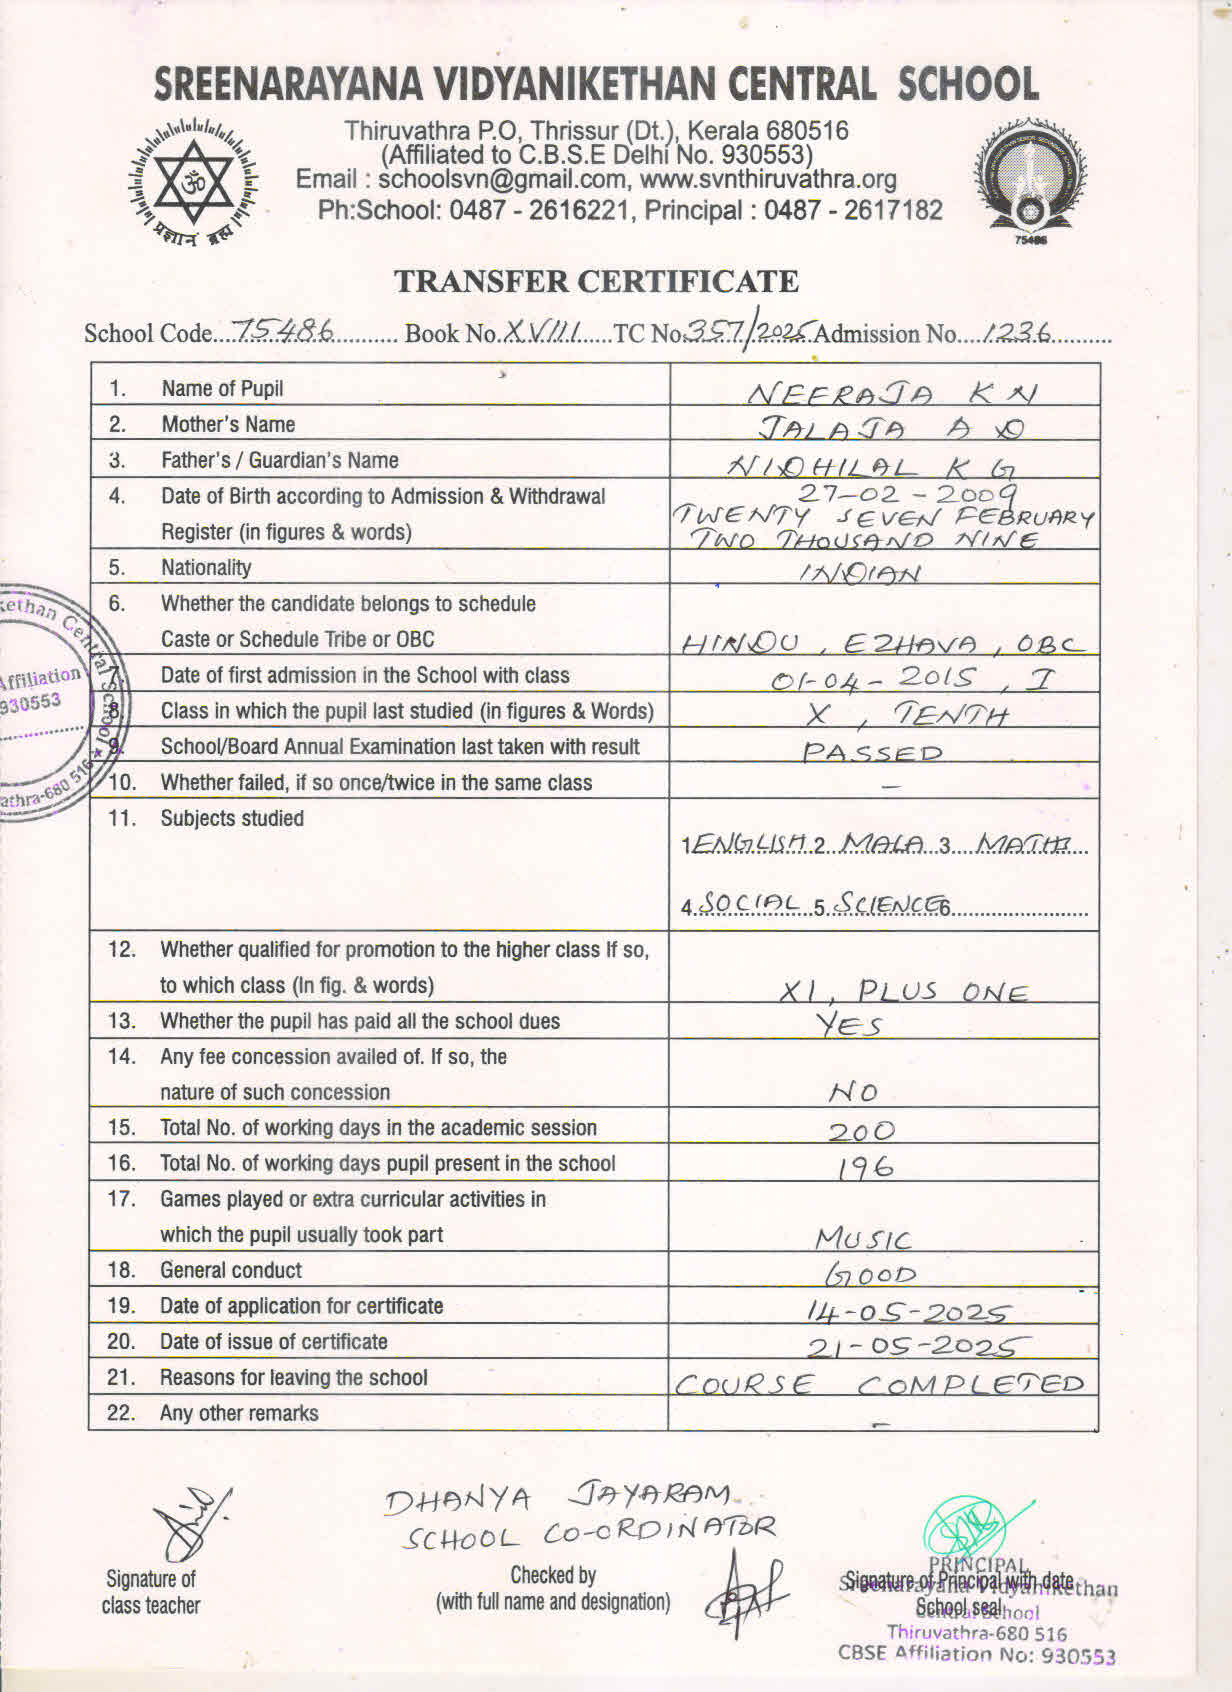 SREENARAYANA VIDYANIKETHAN CENTRAL SCHOOL
Thiruvathra P.O, Thrissur (Dt.), Kerala 680516
(Affiliated to C.B.S.E Delhi No. 930553)
Email : schoolsvn@gmail.com, www.svnthiruvathra.org
Ph:School: 0487 - 2616221, Principal : 0487 - 2617182
ॐ
प्रज्ञानं ब्रह्म
75486
TRANSFER CERTIFICATE
School Code....75486........... Book No.XVIII......TC No.357/2025 Admission No....1236..........
1. Name of Pupil NEERAJA K N
2. Mother's Name JALAJA A D
3. Father's / Guardian's Name NIDHILAL K G
4. Date of Birth according to Admission & Withdrawal 27-02-2009
TWENTY SEVEN FEBRUARY
Register (in figures & words) TWO THOUSAND NINE
5. Nationality INDIAN
6. Whether the candidate belongs to schedule
Caste or Schedule Tribe or OBC HINDU, EZHAVA, OBC
7. Date of first admission in the School with class 01-04-2015, I
8. Class in which the pupil last studied (in figures & Words) X, TENTH
9. School/Board Annual Examination last taken with result PASSED
10. Whether failed, if so once/twice in the same class -
11. Subjects studied
1 ENGLISH 2 MALA 3 MATHS
4 SOCIAL 5 SCIENCE 6
12. Whether qualified for promotion to the higher class If so,
to which class (In fig. & words) XI, PLUS ONE
13. Whether the pupil has paid all the school dues YES
14. Any fee concession availed of. If so, the
nature of such concession NO
15. Total No. of working days in the academic session 200
16. Total No. of working days pupil present in the school 196
17. Games played or extra curricular activities in
which the pupil usually took part MUSIC
18. General conduct GOOD
19. Date of application for certificate 14-05-2025
20. Date of issue of certificate 21-05-2025
21. Reasons for leaving the school COURSE COMPLETED
22. Any other remarks -
kethan Central School
Affiliation
930553
athra-680 516
DHANYA JAYARAM
SCHOOL CO-ORDINATOR
Signature of
class teacher
Checked by
(with full name and designation)
Signature of Principal with date
School seal
PRINCIPAL
Sreenarayana Vidyanikethan
Central School
Thiruvathra-680 516
CBSE Affiliation No: 930553